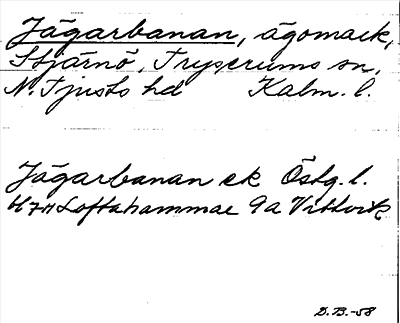 Jägarbanan, ägomark,
Stjärnö, Tryserums sn,
N. Tjusts hd Kalm. l.
Jägarbanan ek Östg. l.
H7H Loftahammar 9a Vittvik
D.B.-58